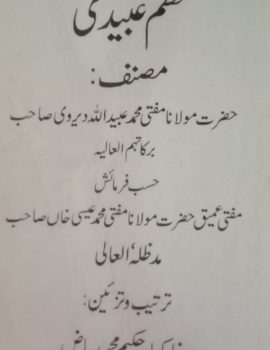 نظم عبیدی
مصنف:
حضرت مولانا مفتی محمد عبید اللہ دیروی صاحب
برکاتہم العالیہ
حسب فرمائش
مفتی عمیق حضرت مولانا مفتی محمد عیسیٰ خان صاحب
مدظلہ، العالی
ترتیب و تزئین:
حکیم محمد